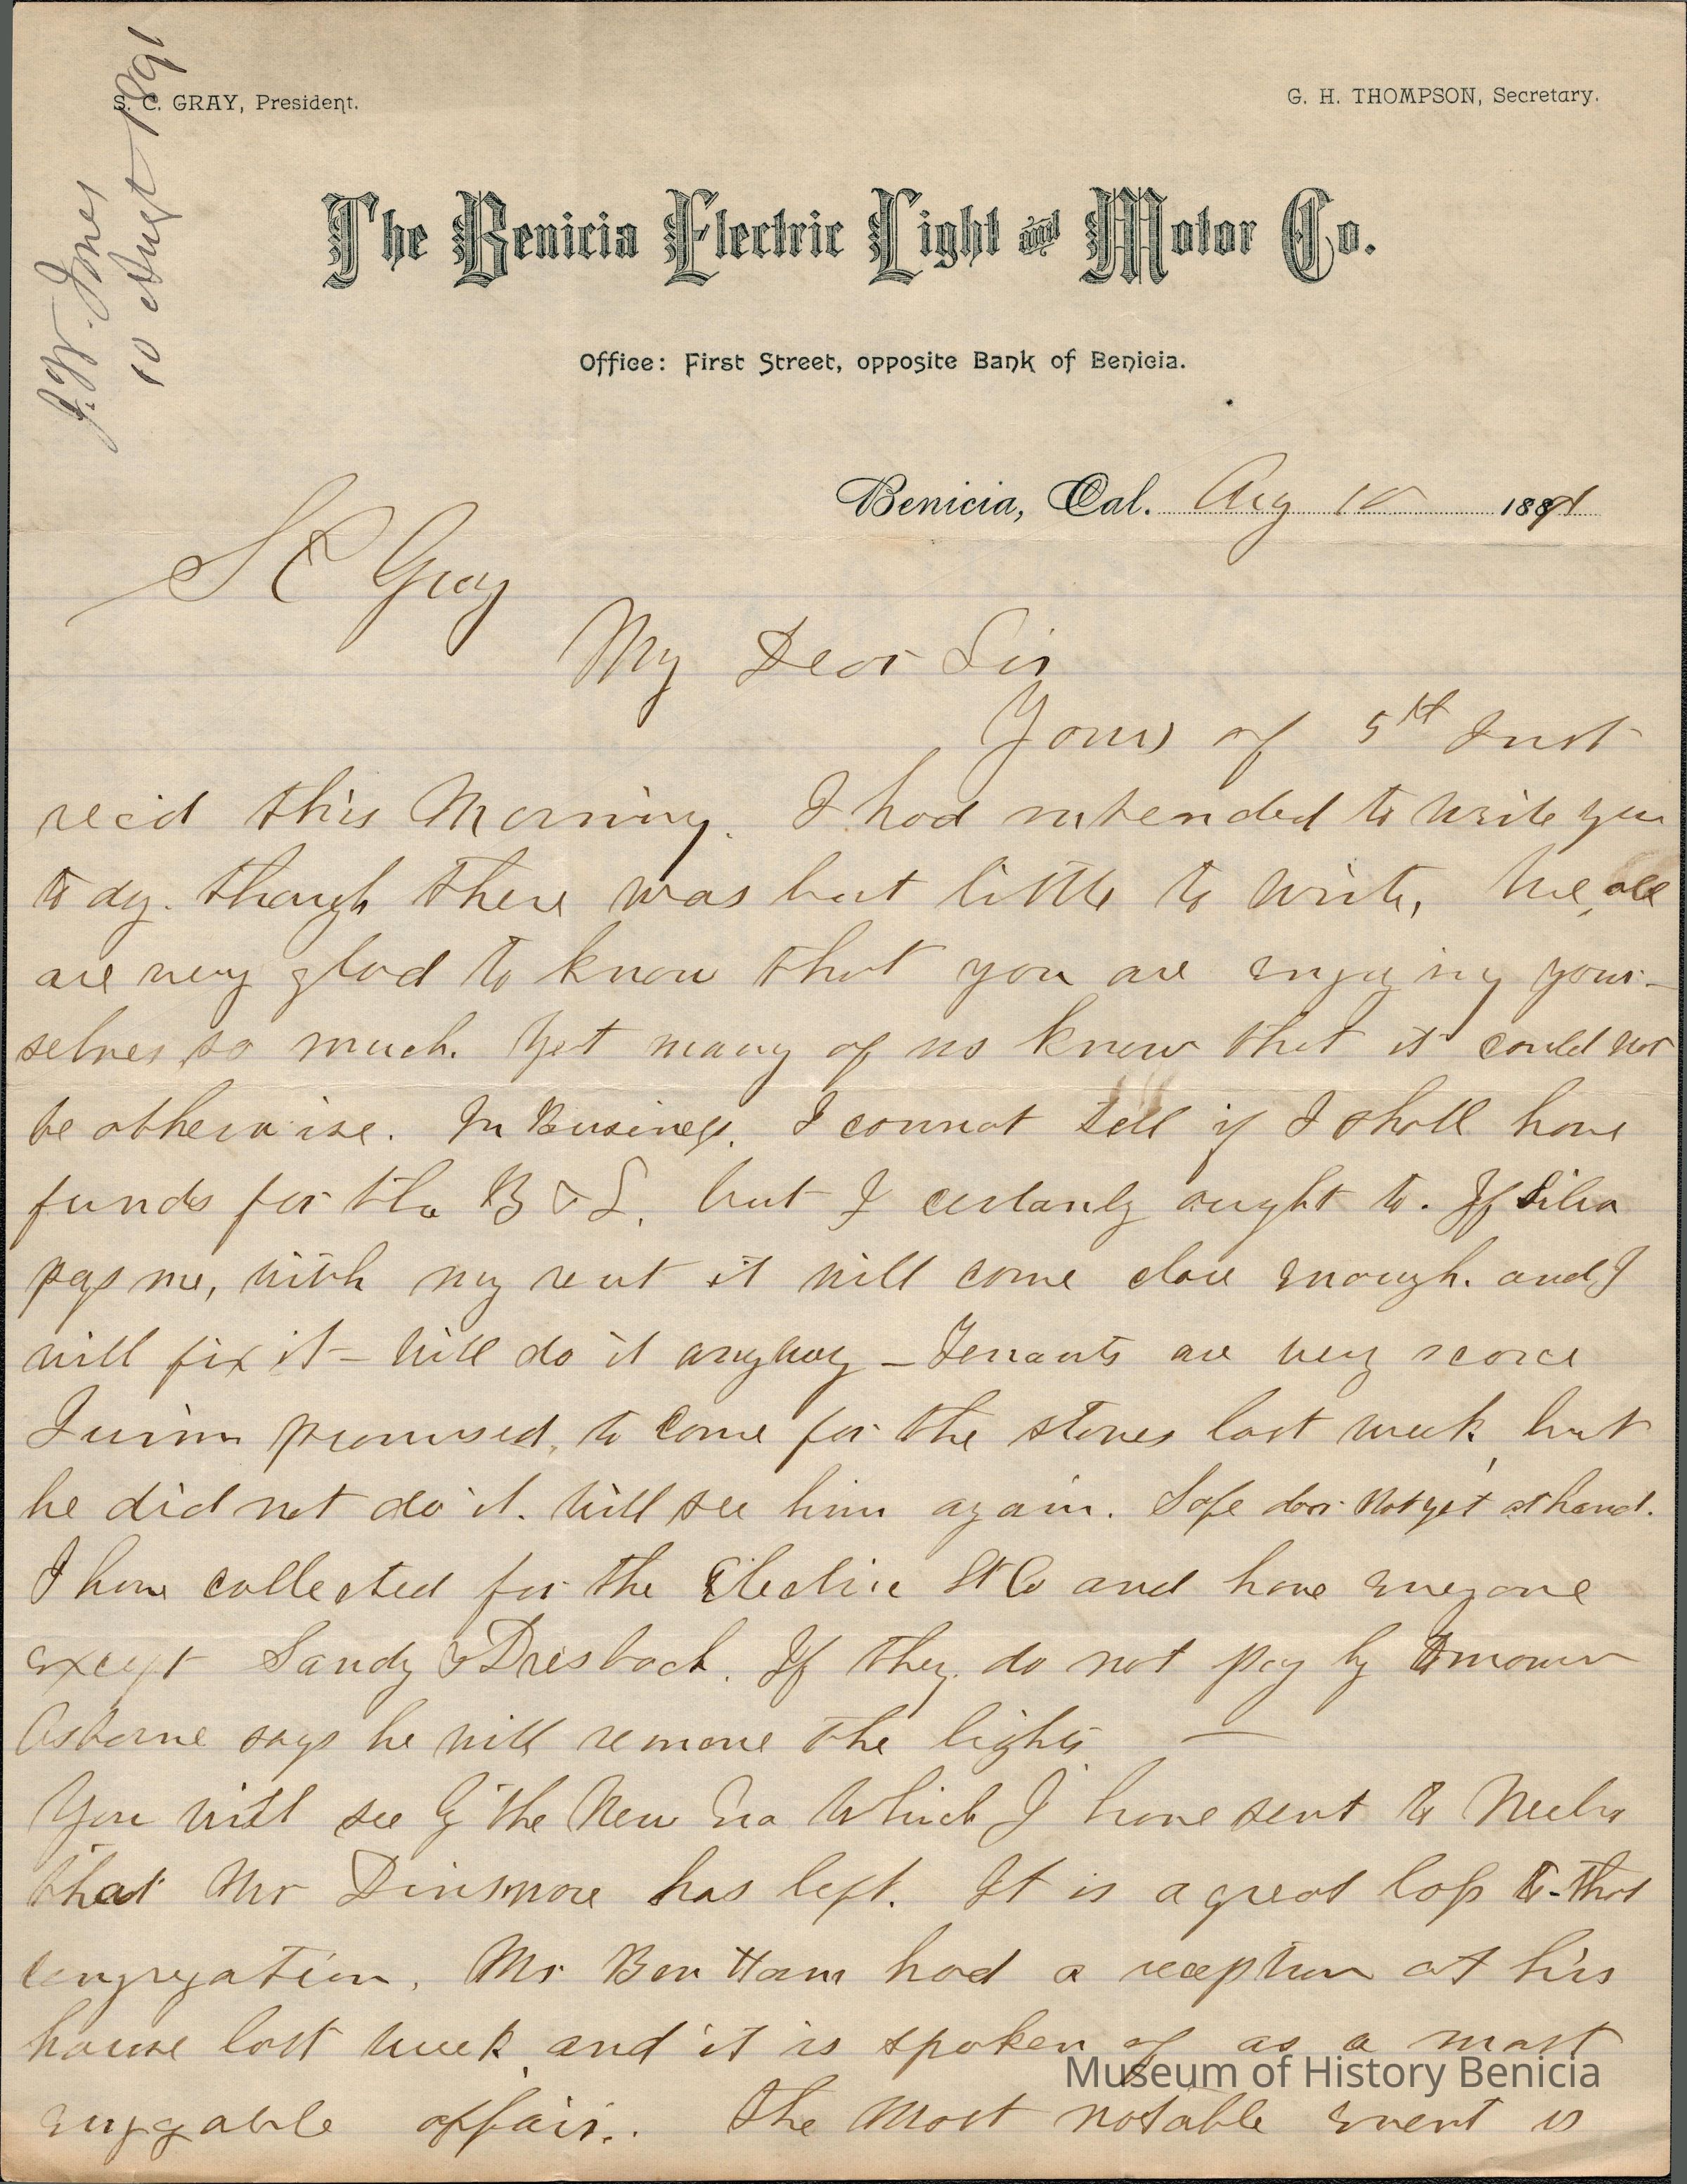 J. W. Jones
10 August 1891
S. C. GRAY, President.
G. H. THOMPSON, Secretary.
The Benicia Electric Light and Motor Co.
Office: First Street, opposite Bank of Benicia.
Benicia, Cal. Aug 10 1891
S C Gray
My Dear Sir
Yours of 5th Inst
rec'd this Morning. I had intended to write you
to day. though there was but little to write, We, all
are very glad to know that you are enjoying your-
selves so much. Yet many of us knew that it could not
be otherwise. In Business. I connot tell if I shall have
funds for the B & L. but I certanly ought to. If Silva
pays me, with my rent it will come close enough. and I
will fix it – will do it anyway – Tenants are very scarce
promised, to come for the stoves last week, but
he did not do it. Will see him again. Safe door Not yet at hand.
I have collected for the Electric Lt Co and have everyone
except Sandy & Dresbach. If they do not pay by tomorrow
Osborne says he will remove the lights —
You will see by the New Era which I have sent to
that Mr Dinsmore has left. It is a great loss to that
congregation. Mr Bon Ham had a reception at his
house last week, and it is spoken of as a most
enjoyable affair. The Most notable event is
Museum of History Benicia